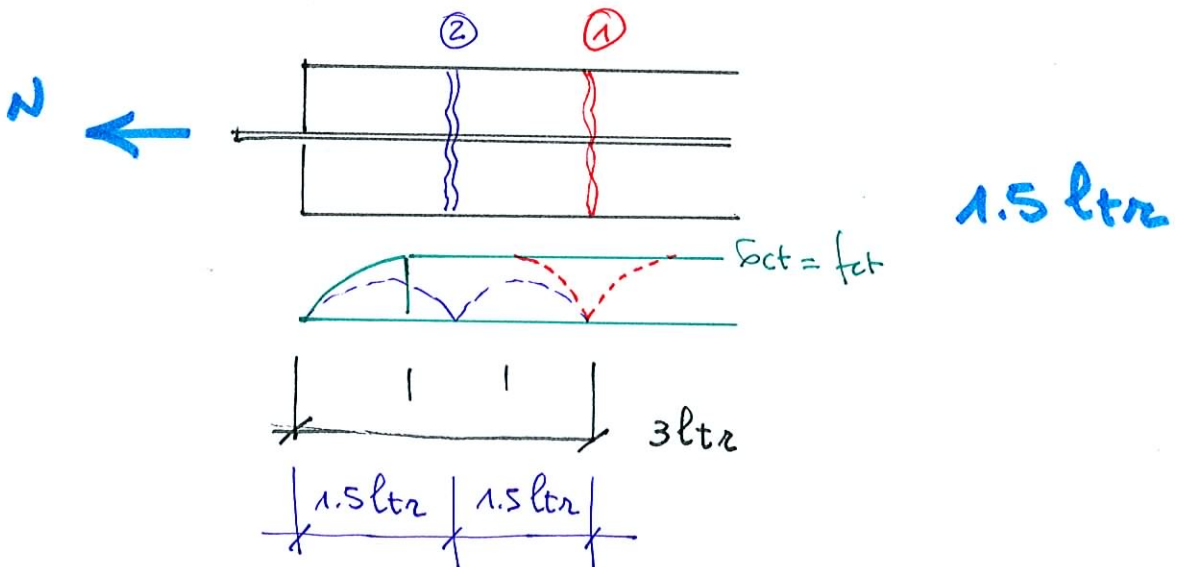 ② ①
N
1.5 ltr
σct = fct
3ltr
1.5 ltr 1.5 ltr